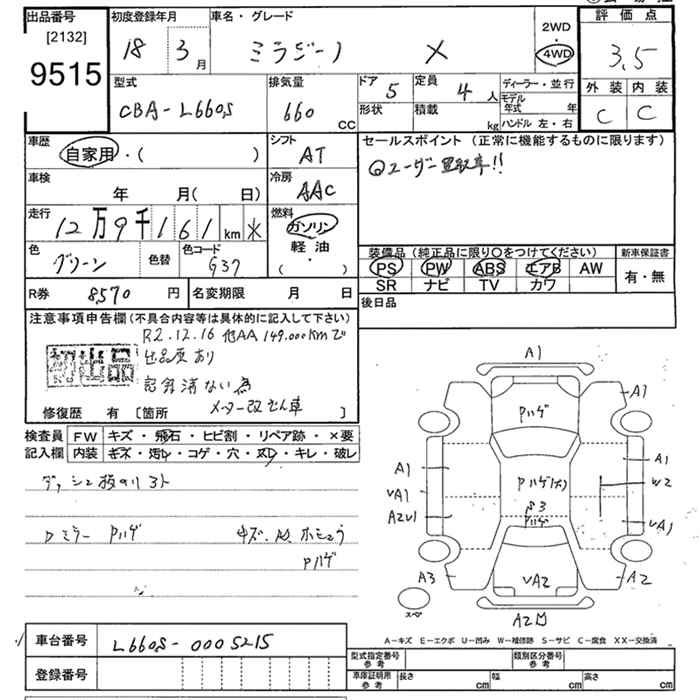 出品番号 初度登録年月 車名・グレード 2WD 評価点
[2132] 18 3月 ミラジーノ X 4WD 3.5
9515
型式 排気量 ドア 5 定員 4人 ディーラー・並行 外装 内装
CBA-L660S 660 CC 形状 積載 kg モデル年式 年 C C
ハンドル 左・右
車歴 シフト セールスポイント (正常に機能するものに限ります)
自家用・( ) AT ユーザー買取車!!
車検 冷房
年 月( 日) AAC
走行 燃料
12万9千161km ※ ガソリン
色 色替 色コード 軽油 装備品(純正品に限り○をつけてください) 新車保証書
グリーン G37 ( ・ ) PS PW ABS エアB AW 有・無
SR ナビ TV カワ
R券 8570円 名変期限 月 日 後日品
注意事項申告欄(不具合内容等は具体的に記入して下さい)
R2.12.16 他AA 149.000kmで
初出品 出品歴あり
メーター改ざん車
修復歴 有 [箇所 ]
検査員 FW キズ・飛石・ヒビ割・リペア跡・×要
記入欄 内装 キズ・汚レ・コゲ・穴・スレ・キレ・破レ
Pハゲ
Pハゲ
A1
A1
Pハゲ
A1 A1
Pハゲ(大) W2
VA1
S3
Pハゲ VA1
A3 VA2 A2
スペ
A2
A-キズ E-エクボ U-凹み W-補修跡 S-サビ C-腐食 XX-交換済
車台番号 L660S-0005215
型式指定番号 参考 類別区分番号 参考
登録番号
車庫証明用 参考 長さ cm 幅 cm 高さ cm